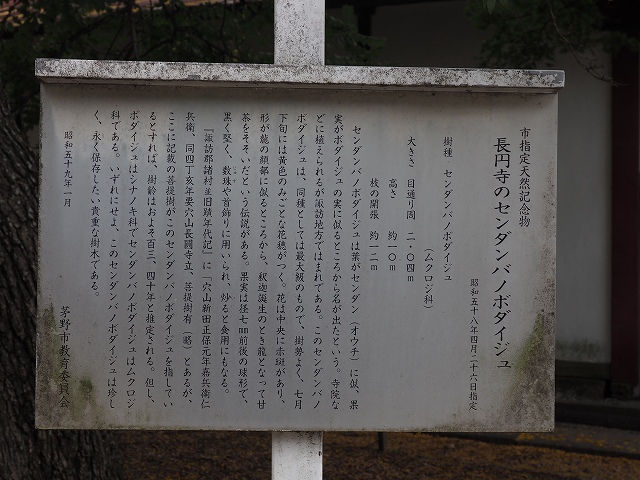 市指定天然記念物
長円寺のセンダンバノボダイジュ
昭和五十八年四月二十六日指定
樹種 センダンバノボダイジュ
(ムクロジ科)
大きさ 目通り周 二・〇四m
高さ 約一〇m
枝の開張 約一二m
センダンバノボダイジュは葉がセンダン(オウチ)に似、果
実がボダイジュの実に似るところから名が出たという。寺院な
どに植えられるが諏訪地方ではまれである。このセンダンバノ
ボダイジュは、同種としては最大級のもので、樹勢よく、七月
下旬には黄色のみごとな花穂がつく。花は中央に赤斑があり、
形が龍の顔部に似るところから、釈迦誕生のとき龍となって甘
茶をそそいだという伝説がある。果実は径七㎜前後の球形で、
黒く堅く、数珠や首飾りに用いられ、炒ると食用にもなる。
「諏訪郡諸村並旧蹟年代記」に「穴山新田正保元年嘉兵衛仁
兵衛、同四丁亥年要穴山長圓寺立、菩提樹有(略)とあるが、
ここに記載の菩提樹がこのセンダンバノボダイジュを指してい
るとすれば、樹齢はおよそ百三、四十年と推定される。但し、
ボダイジュはシナノキ科でセンダンバノボダイジュはムクロジ
科である。いずれにせよ、このセンダンバノボダイジュは珍し
く、永く保存したい貴重な樹木である。
昭和五十九年一月
茅野市教育委員会